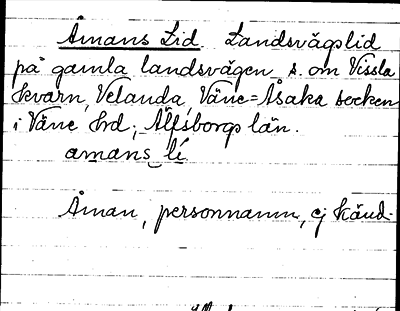 Åmans Lid. Landsvägslid
på gamla landsvägen s. om Vissla
kvarn, Velanda, Väne-Åsaka socken
i Väne hrd, Älfsborgs län.
amans lí
Åman, personnamn, ej känd.